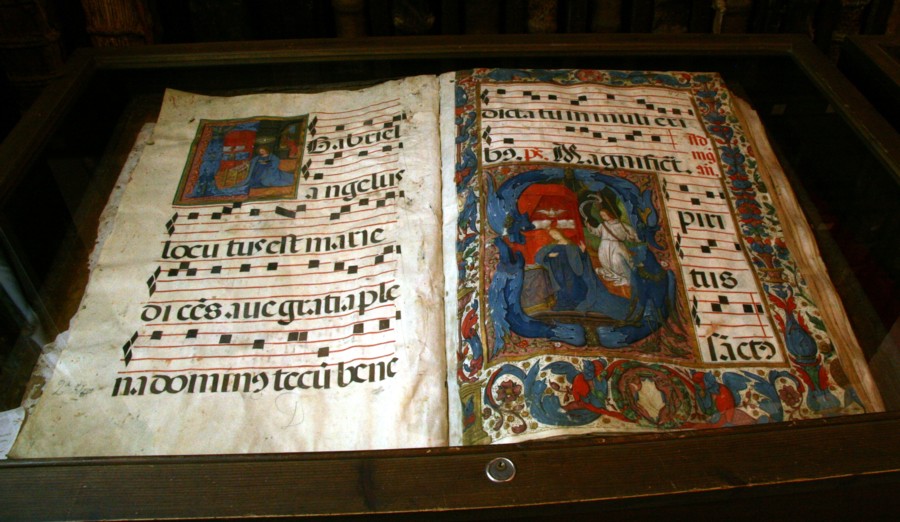 Gabriel
angelus
locutus est marie
dicēs. ave gratia ple
na dominꝰ tecū bene
dicta tu in mulieri
bꝰ. ps. Magnificat.
piri
tus
sāctꝰ